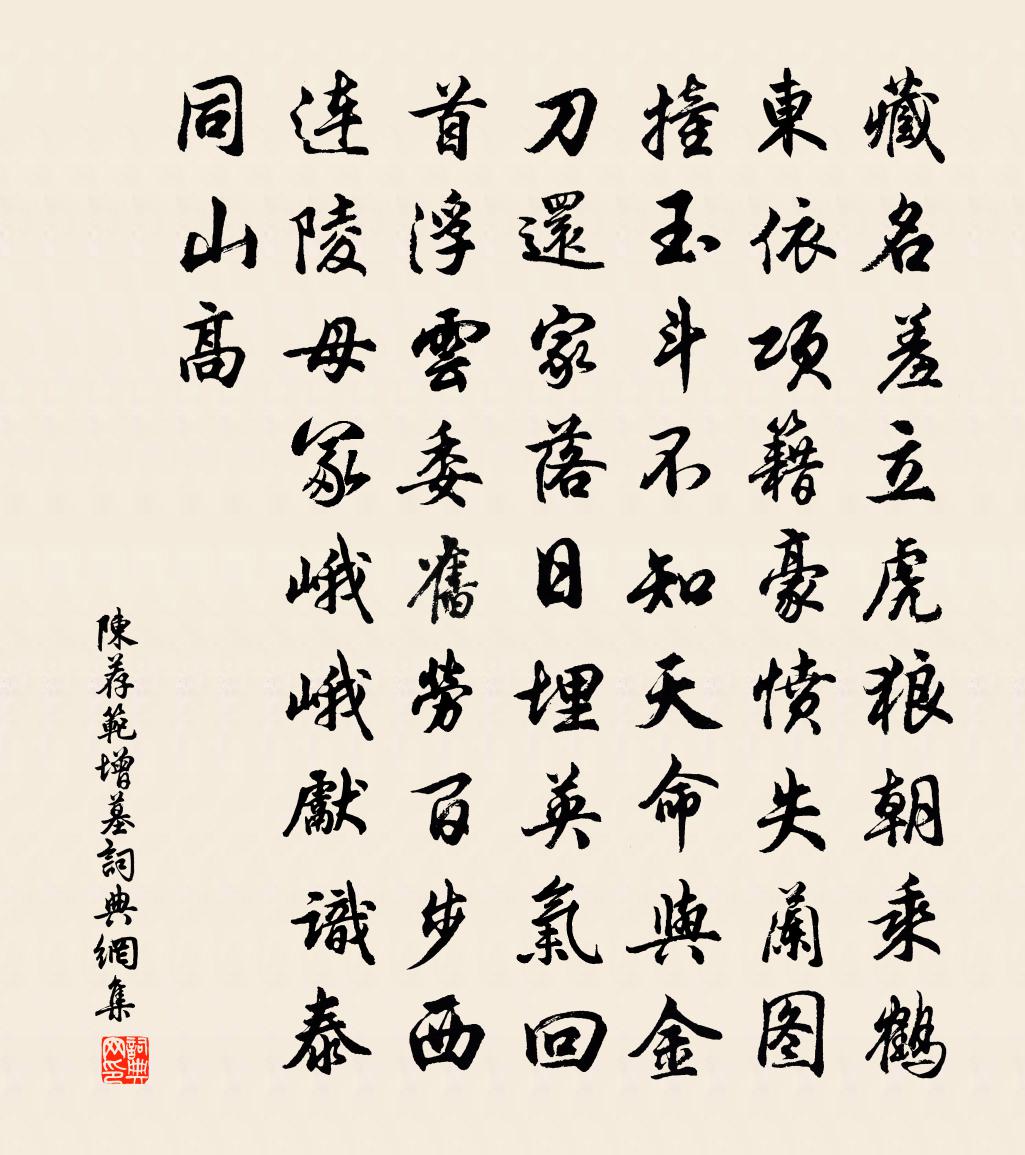 藏名羞立虎狼朝乘鶴
東依项籍豪憤失蘭图
撞玉斗不知天命與金
刀還家落日埋英氣回
首浮雲委舊勞百步西
连陵母冢峨峨獻識泰
同山高
陳荐範增墓詞典網集
詞典网印